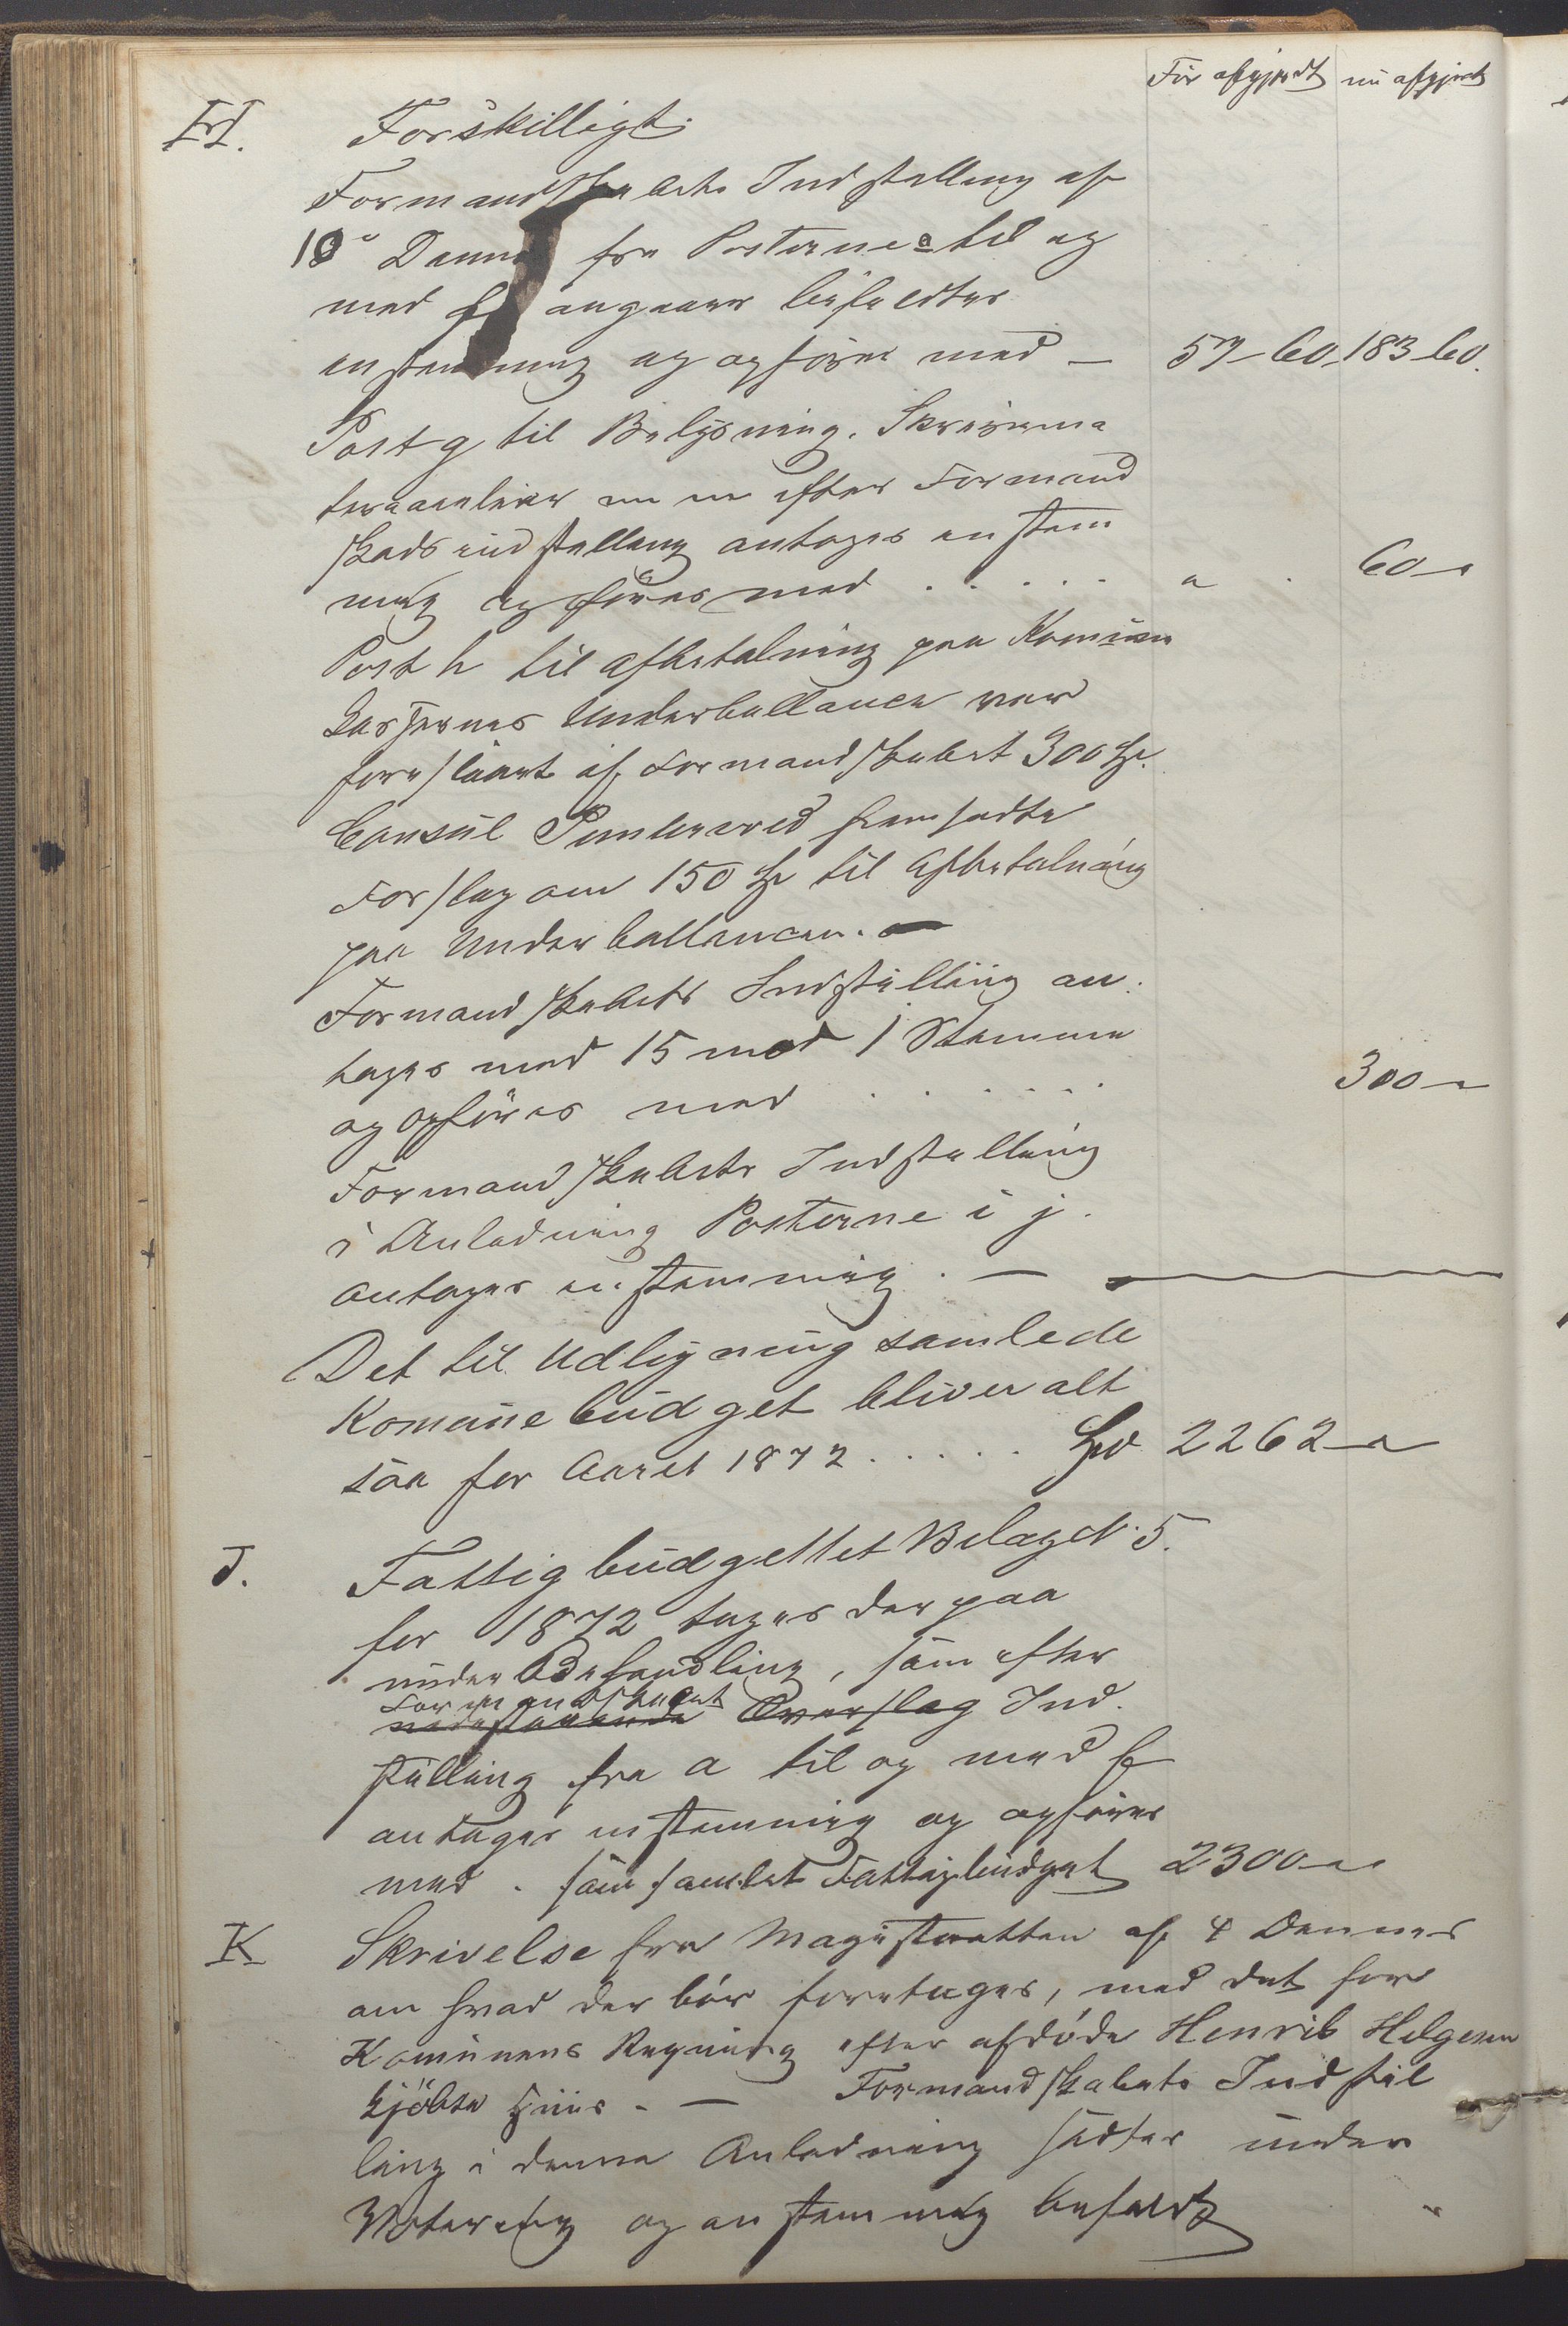 Før afgjordt nu afgjort
H. Forskilligt.
Formandskabets Indstilling af
18 Dennes fra Posterne a til og
med f angaaer bifaldtes
enstemmig og opføres med — 57-60 183-60.
Post g til Belysning. Skrivema
terialier en m efter Formand
skabs indstilling antages enstem
mig og føres med . . . . . " 60 "
Post h til afbetalning paa Komune
Kassernes Underballance var
foreslaaet af Formandskabet 300 Spd.
Consul fremsadte
Forslag om 150 Spd til Afbetalning
paa Underballancen. —
Formandskabets Indstilling an
tages med 15 mod 1 Stemme
og opføres med . . . . . . 300 "
Formandskabets Indstilling
i Anledning Posterne i j.
antages enstemmig. —
Det til Udligning samlede
Komunebudget bliver alt
saa for Aaret 1872 . . . . . Spd 2262 "
J. Fattigbudgettet Bilag N. 5.
for 1872 tages der paa
under Behandling, som efter
Formandskabet
nedestaaende Overslag Ind.
stilling fra a til og med f
antages enstemmig og opføres
med . som samlet Fattigbudget 2300 "
K Skrivelse fra Magistratten af 4 Dennes
om hvad der bør foretages, med det for
Komunens Regning efter afdøde Henrik Helgesen
kjøbte Huus. — Formandskabets Indstil
ling i denne Anledning sadtes under
Votering og enstemmig bifaldt